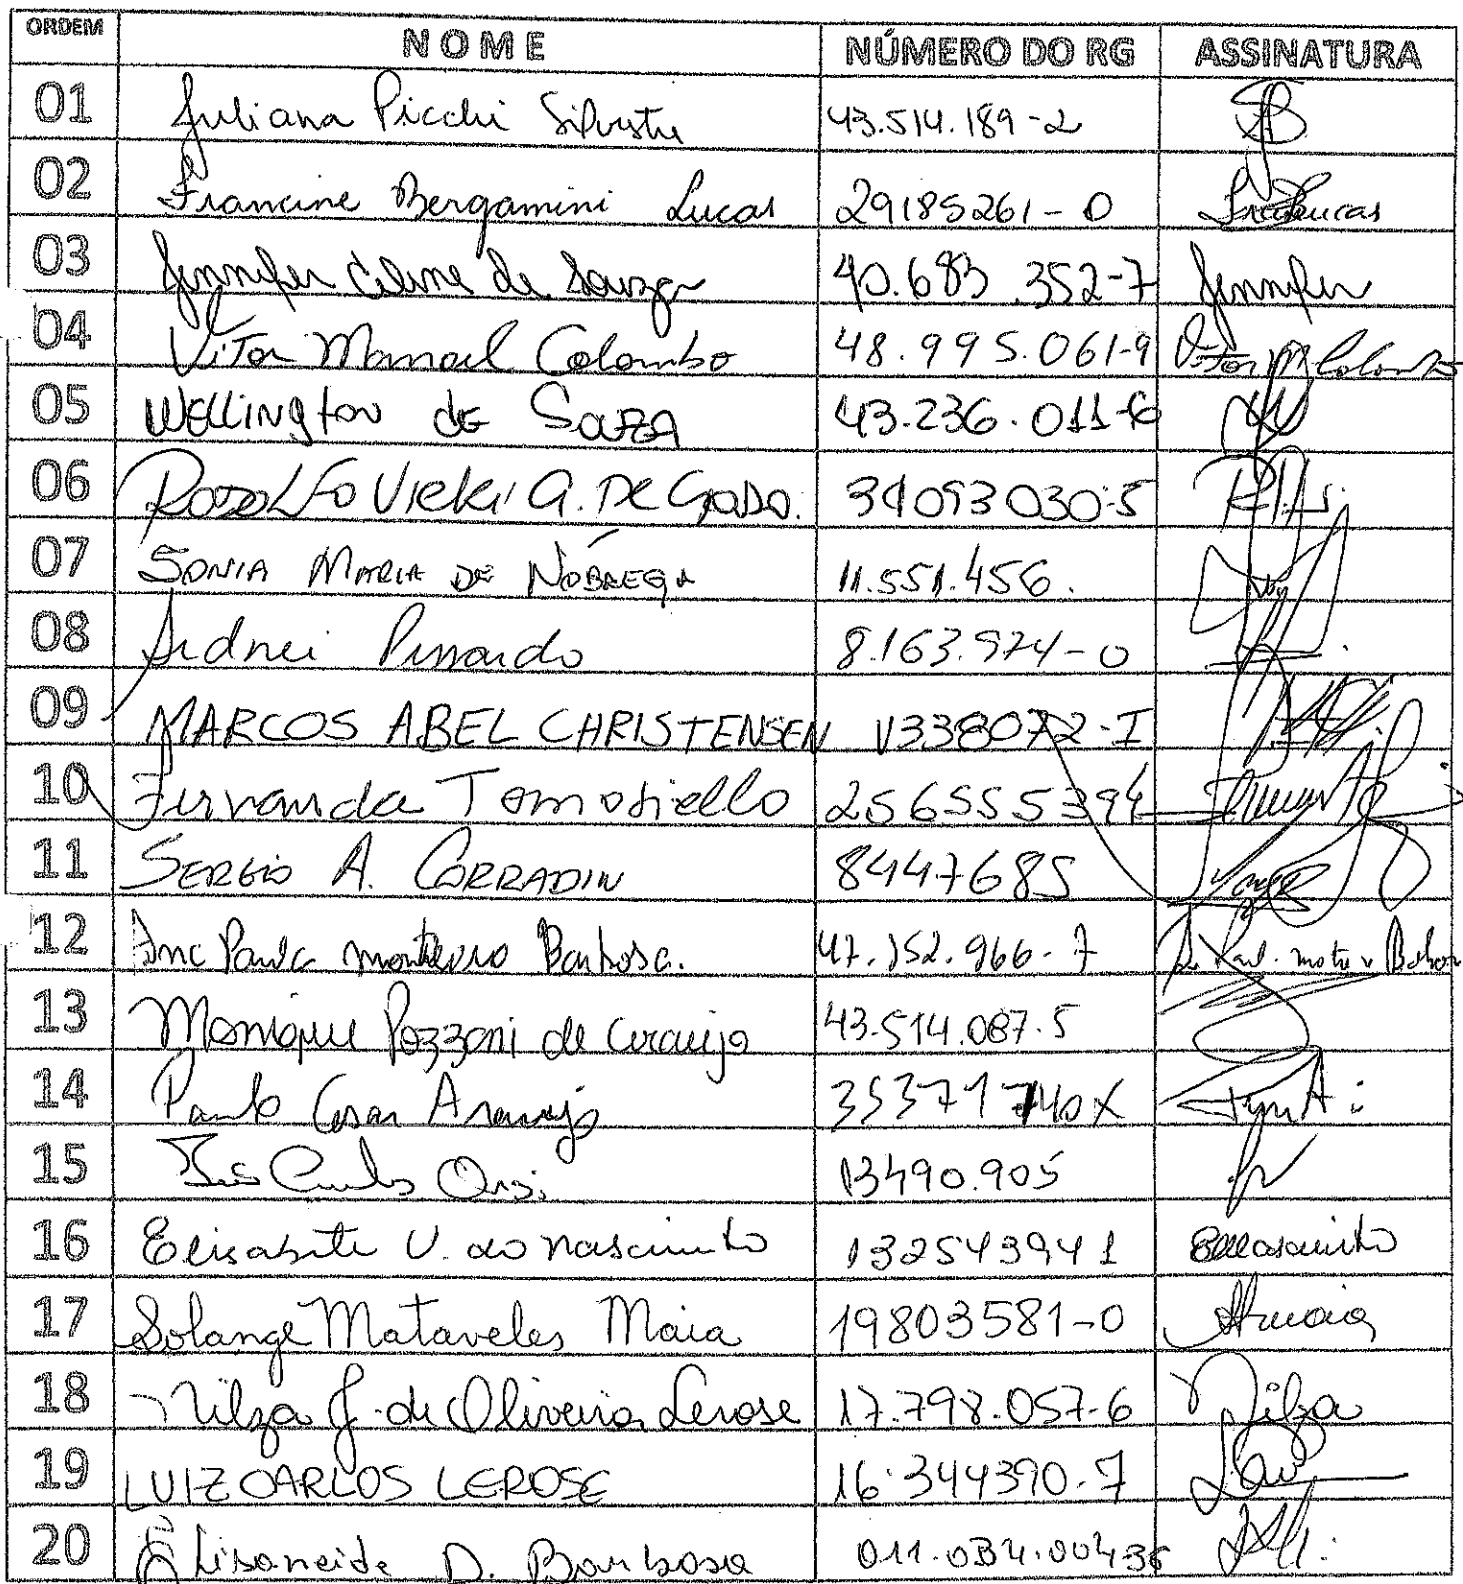 ORDEM NOME NÚMERO DO RG ASSINATURA
01 Juliana Picchi Silvestre 43.514.189-2
02 Francine Bergamini Lucas 29185261-0
03 Jennifer de Souza 40.683.352-7 Jennifer
04 Vitor Manoel Colombo 48.995.061-9 Vitor M Colombo
05 Wellington de Souza 43.236.011-6
06 34093030-5
07 SONIA MARIA DE NÓBREGA 11.551.456.
08 Sidnei 8.163.974-0
09 MARCOS ABEL CHRISTENSEN V338072-I
10 Fernanda Tomotiello 256555394
11 SERGIO A. CORRADIN 8447685
12 Ana Paula monteiro Barbosa. 47.152.966-7
13 Monique Pozzoni de Araujo 43.514.087.5
14 Paulo Cesar Araujo 35371740X
15 Carlos Orsi 13490.905
16 Elisabete V. do nascimento 132543941
17 Solange Mataveles Maia 19803581-0
18 Nilza J. de Oliveira Lerose 17.798.057-6 Nilza
19 LUIZ CARLOS LEROSE 16.344390-7
20 Elisoneide D. Barbosa 011.034.004-36